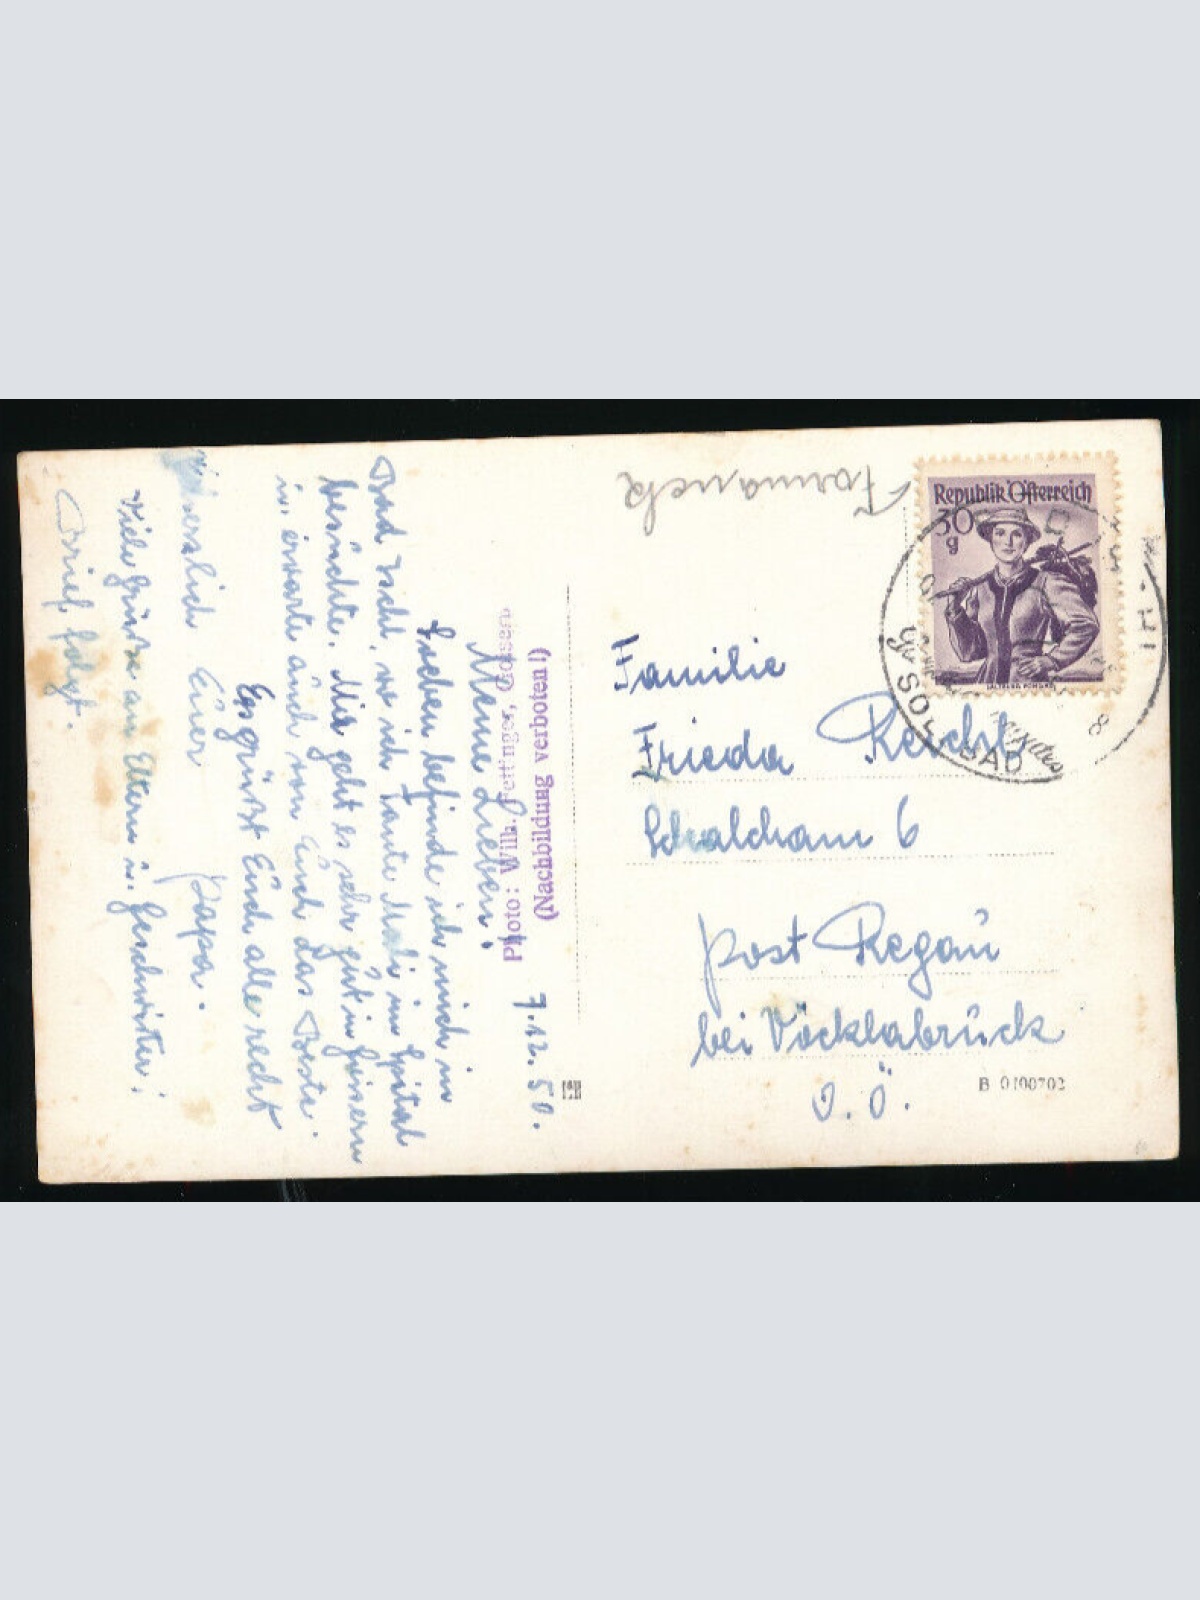 7.12.50.
Meine Lieben!
Soeben befinde ich mich in
Bad Ischl, wo ich Tante Mali im Spital
besuchte. Mir geht es sehr gut in Goisern
u. erwarte auch von Euch das Beste.
Es grüßt Euch alle recht
herzlich Euer Papa.
Viele Grüße an Eltern u. Geschwister!
Brief folgt.
Photo: Wilh. Fettinger, Goisern
(Nachbildung verboten!)
Republik Österreich
30
g
SOLBAD
Familie
Frieda Reicht
Schalcham 6
Post Regau
bei Vöcklabruck
O. Ö.
B 0100702